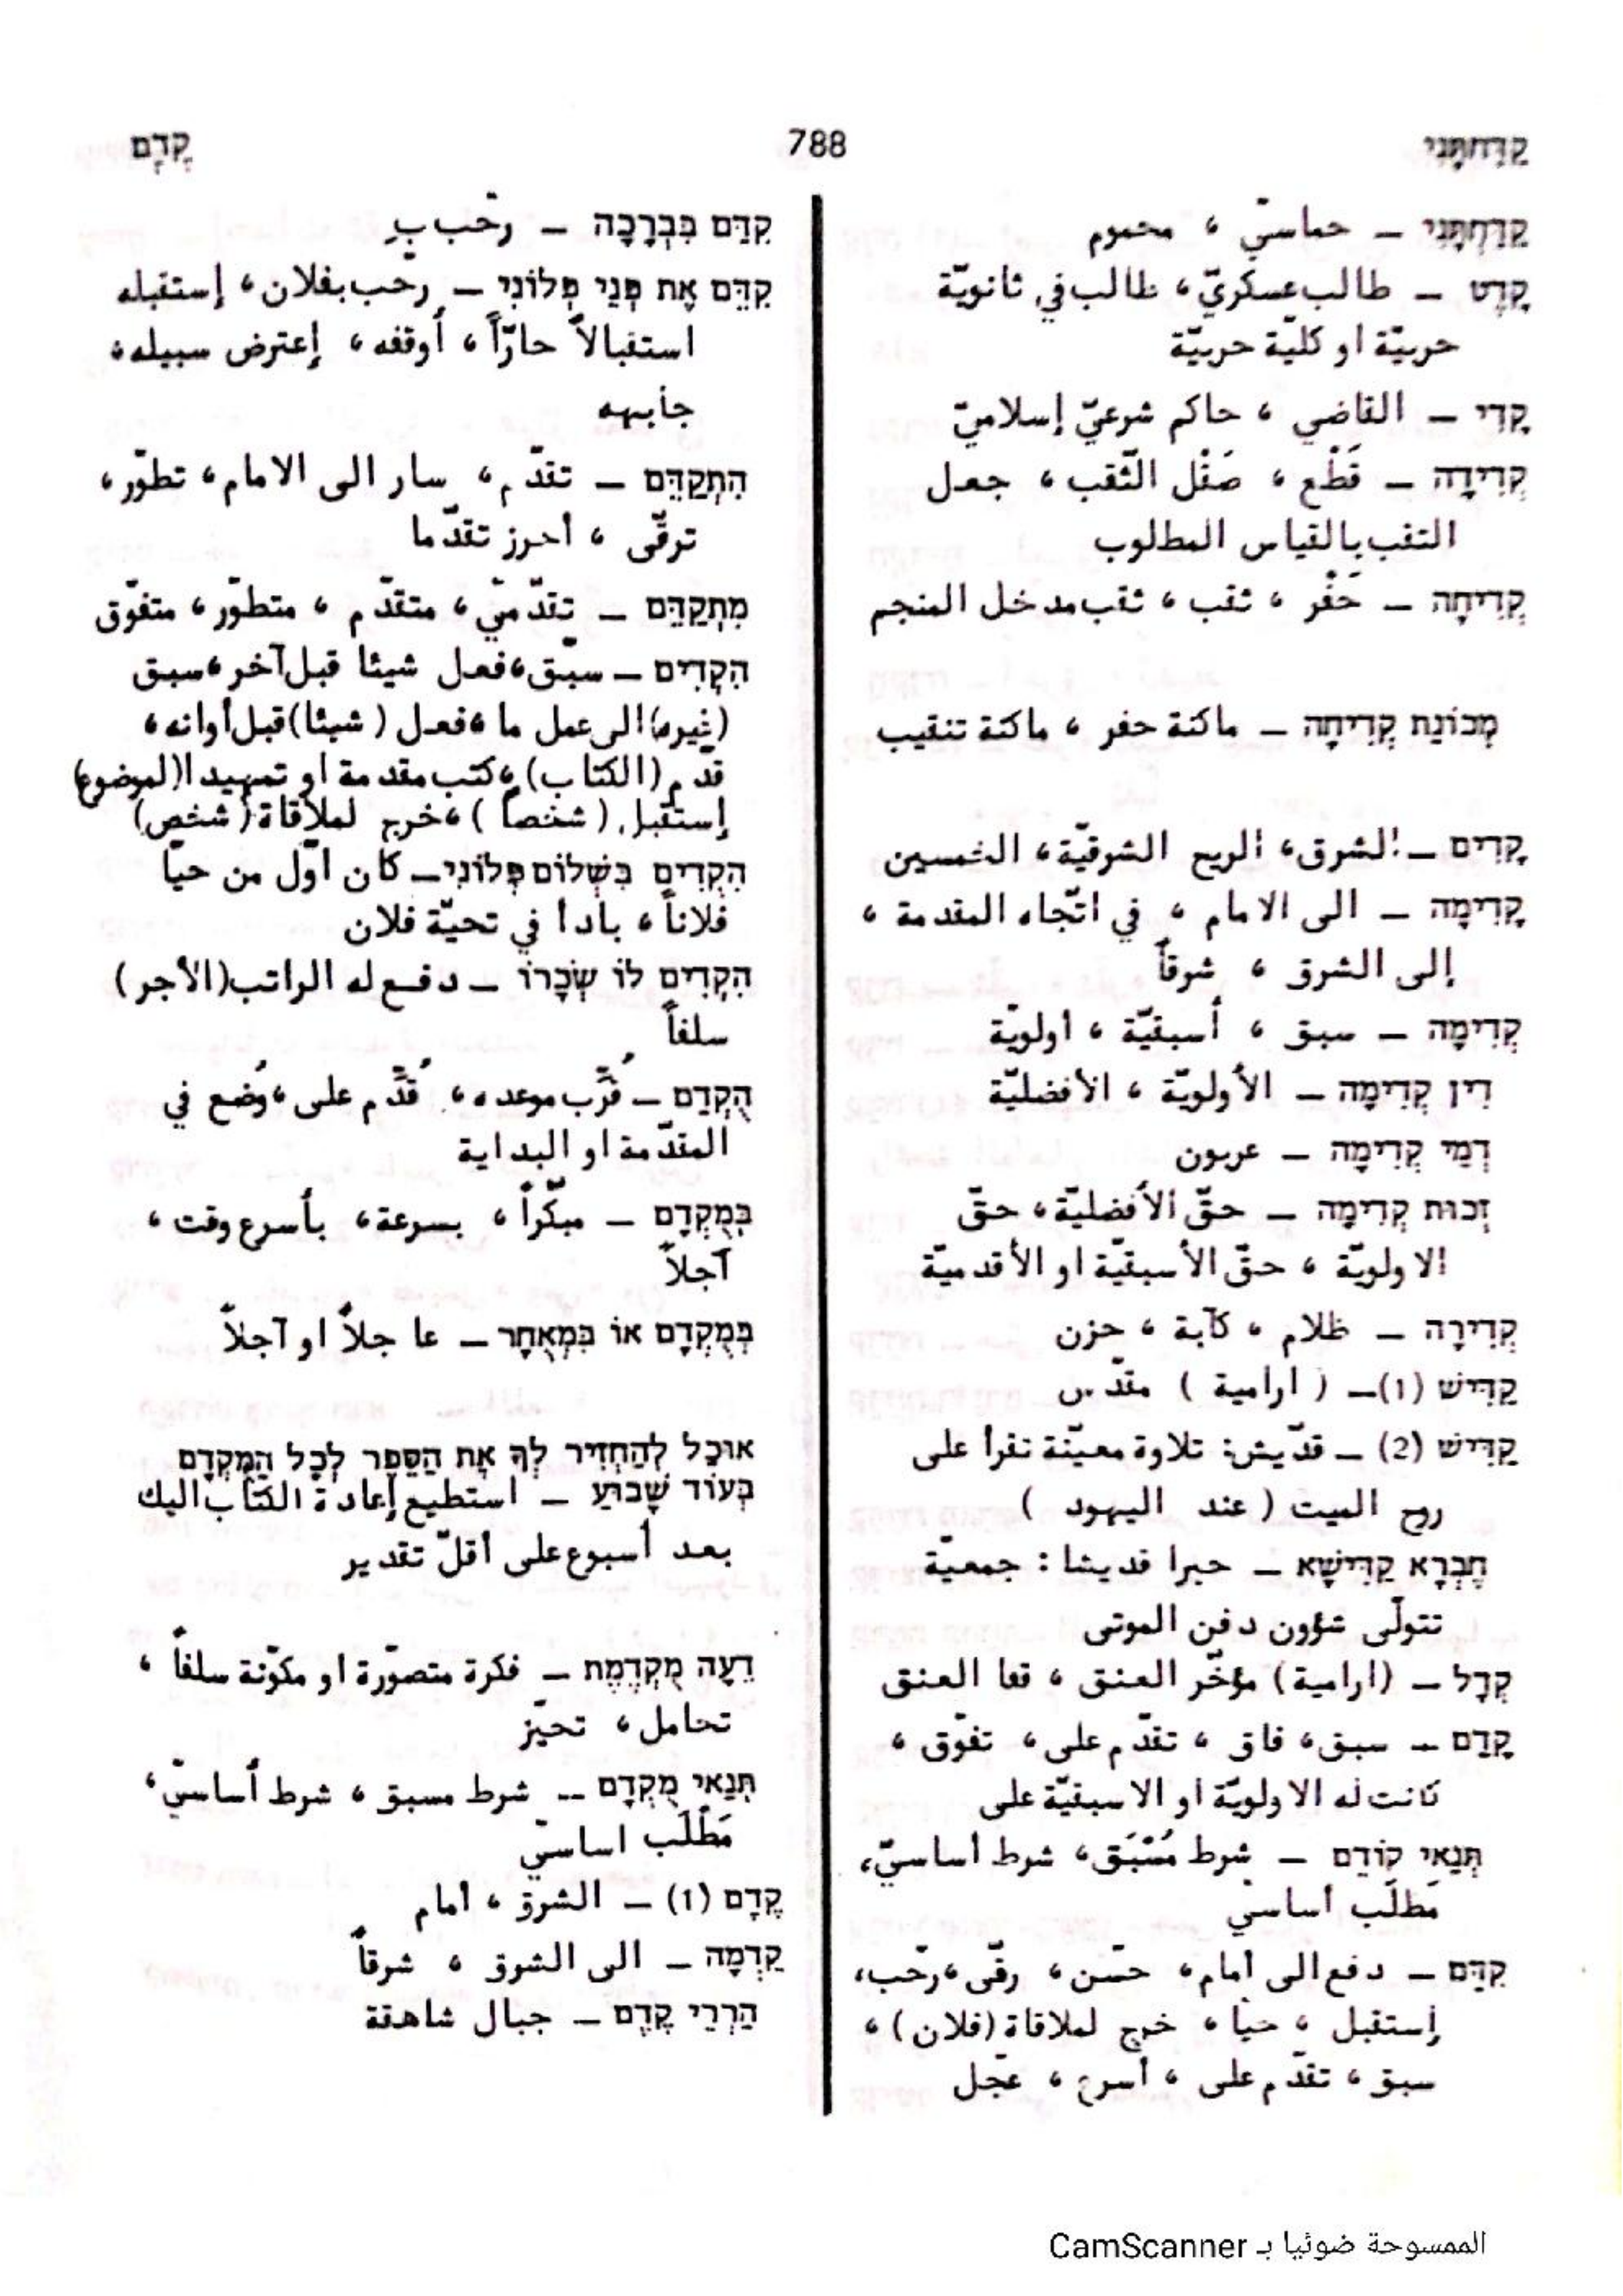 קַדַּחְתָּנִי
788
קֶדֶם
קַדַּחְתָּנִי – حماسيّ ، محموم
קָדֶט – طالب عسكريّ ، طالب في ثانويّة
حربيّة او كليّة حربيّة
קָדִי – القاضي ، حاكم شرعيّ إسلاميّ
קְדִידָה – قَطْع ، صَقْل الثّقب ، جعل
الثقب بالقياس المطلوب
קְדִיחָה – حَفْر ، ثقب ، ثقب مدخل المنجم
מְכוֹנַת קְדִיחָה – ماكنة حفر ، ماكنة تنقيب
קָדִים – الشرق ، الريح الشرقيّة ، الخمسين
קָדִימָה – الى الامام ، في اتّجاه المقدمة ،
إلى الشرق ، شرقاً
קְדִימָה – سبق ، أسبقيّة ، اولويّة
דִּין קְדִימָה – الأولويّة ، الأفضليّة
דְּמֵי קְדִימָה – عربون
זְכוּת קְדִימָה – حقّ الأفضليّة ، حقّ
الاولويّة ، حقّ الأسبقيّة او الأقدميّة
קְדִירָה – ظلام ، كآبة ، حزن
קַדִּישׁ (1) – ( ارامية ) مقدّس
קַדִּישׁ (2) – قدّيش: تلاوة معيّنة تقرأ على
روح الميت ( عند اليهود )
חֶבְרָא קַדִּישָׁא – حبرا قديشا : جمعيّة
تتولّى شؤون دفن الموتى
קְדָל – (ارامية) مؤخّر العنق ، قفا العنق
קָדַם – سبق ، فاق ، تقدّم على ، تفوّق ،
كانت له الاولويّة او الاسبقيّة على
תְּנַאי קוֹדֵם – شرط مُسْبَق ، شرط أساسيّ ،
مَطلَب أساسيّ
קִדֵּם – دفع الى أمام ، حسّن ، رقّى ، رحّب ،
إستقبل ، حيا ، خرج لملاقاة (فلان) ،
سبق ، تقدّم على ، أسرع ، عجّل
קִדֵּם בִּבְרָכָה – رحّب بِ
קִדֵּם אֶת פְּנֵי פְּלוֹנִי – رحّب بفلان ، إستقبله
استقبالاً حارّاً ، أوقفه ، إعترض سبيله ،
جأبهه
הִתְקַדֵּם – تقدّم ، سار الى الامام ، تطوّر ،
ترقّى ، أحرز تقدّما
מִתְקַדֵּם – تقدّميّ ، متقدّم ، متطوّر ، متفوّق
הִקְדִּים – سبّق ، فعل شيئا قبل آخر ، سبق
(غيره) الى عمل ما ، فعل ( شيئا) قبل أوانه ،
قدّم (الكتاب) ، كتب مقدمة او تمهيدا (لموضوع)
إستقبل ( شخصاً ) ، خرج لملاقاة ( شخص)
הִקְדִּים בִּשְׁלוֹם פְּלוֹנִי – كان اوّل من حيّا
فلاناً ، بادأ في تحيّة فلان
הִקְדִּים לוֹ שְׂכָרוֹ – دفع له الراتب (الأجر)
سلفاً
הֻקְדַּם – قُرِّب موعده ، قُدِّم على ، وُضع في
المقدّمة او البداية
בְּמֻקְדָּם – مبكّراً ، بسرعة ، بأسرع وقت ،
آجلاً
בְּמֻקְדָּם אוֹ בִּמְאֻחָר – عاجلاً او آجلاً
אוּכַל לְהַחְזִיר לְךָ אֶת הַסֵּפֶר לְכָל הַמֻּקְדָּם
בְּעוֹד שָׁבוּעַ – استطيع إعادة الكتاب اليك
بعد أسبوع على اقلّ تقدير
דֵּעָה מֻקְדֶּמֶת – فكرة متصوّرة او مكوّنة سلفاً ،
تحامل ، تحيّز
תְּנַאי מֻקְדָּם – شرط مسبق ، شرط أساسيّ ،
مَطْلَب اساسيّ
קֶדֶם (1) – الشرق ، أمام
קֵדְמָה – الى الشرق ، شرقاً
הַרְרֵי קֶדֶם – جبال شاهقة
الممسوحة ضوئيا بـ CamScanner